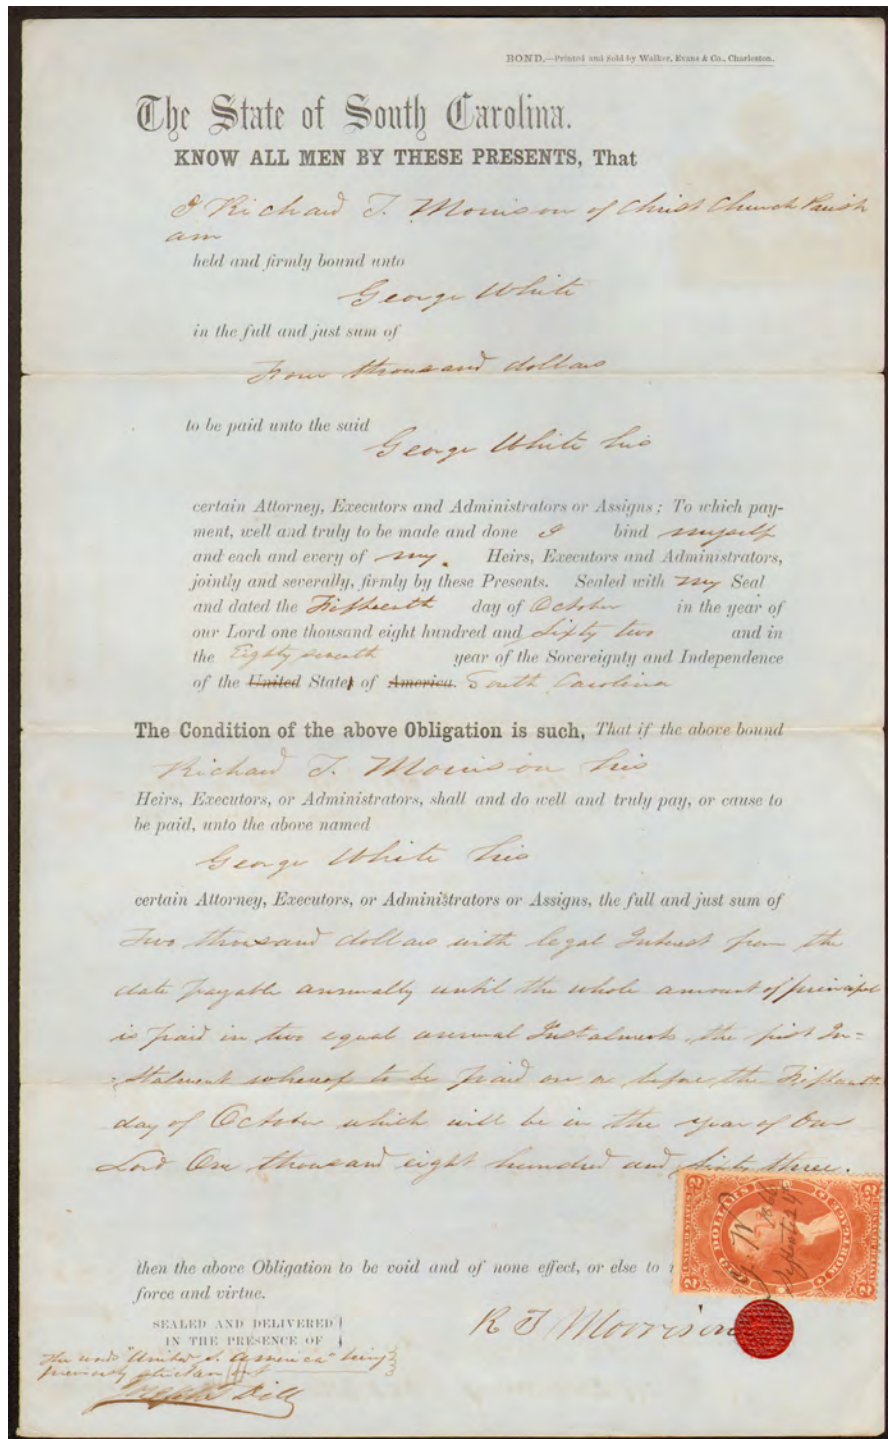 BOND.—Printed and Sold by Walker, Evans & Co., Charleston.
The State of South Carolina.
KNOW ALL MEN BY THESE PRESENTS, That
I Richard T. Morrison of Christ Church Parish
am
held and firmly bound unto
George White
in the full and just sum of
Four thousand dollars
to be paid unto the said
George White his
certain Attorney, Executors and Administrators or Assigns; To which pay-
ment, well and truly to be made and done I bind myself
and each and every of my. Heirs, Executors and Administrators,
jointly and severally, firmly by these Presents. Sealed with my Seal
and dated the Fifteenth day of October in the year of
our Lord one thousand eight hundred and Sixty two and in
the Eighty seventh year of the Sovereignty and Independence
of the United State of America. South Carolina
The Condition of the above Obligation is such, That if the above bound
Richard T. Morrison his
Heirs, Executors, or Administrators, shall and do well and truly pay, or cause to
be paid, unto the above named
George White his
certain Attorney, Executors, or Administrators or Assigns, the full and just sum of
Two thousand dollars with legal Interest from the
date payable annually until the whole amount of principal
is paid in two equal annual Instalments, the first In=
stalment whereof to be paid on or before the Fifteenth
day of October which will be in the year of Our
Lord One thousand eight hundred and sixty three.
2 DOLLARS 2
UNITED STATES INTER. REVENUE
MORTGAGE
then the above Obligation to be void and of none effect, or else to
force and virtue.
SEALED AND DELIVERED
IN THE PRESENCE OF
R T Morrison
The words "United S. America" being
previously stricken out
Joseph Dill